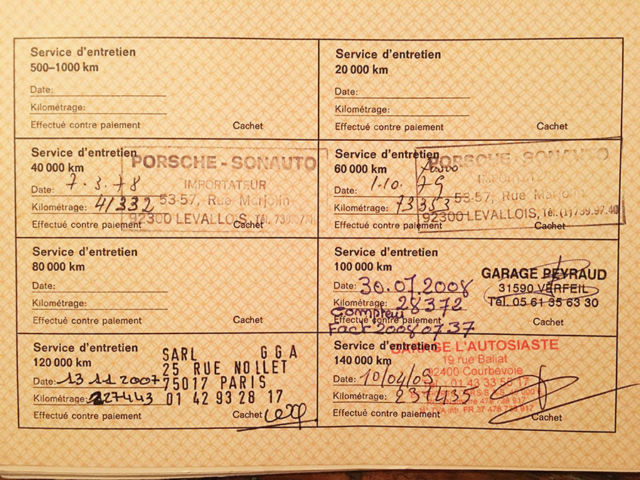 Service d'entretien
500–1000 km
Date:
Kilométrage:
Effectué contre paiement Cachet
Service d'entretien
20 000 km
Date:
Kilométrage:
Effectué contre paiement Cachet
Service d'entretien
40 000 km
Date: 7.3.78
Kilométrage: 41332
Effectué contre paiement Cachet
PORSCHE - SONAUTO
IMPORTATEUR
53-57, Rue Marjolin
92300 LEVALLOIS, Tél.
Service d'entretien
60 000 km
Date: 1.10. 79
Kilométrage: 73353
Effectué contre paiement Cachet
PORSCHE - SONAUTO
53-57, Rue
92300 LEVALLOIS, Tél. (1) 739.97.40
Service d'entretien
80 000 km
Date:
Kilométrage:
Effectué contre paiement Cachet
Service d'entretien
100 000 km
Date: 30.07.2008
Kilométrage: 28372
Compteur
Effectué contre paiement
Fact 2008 07.37
GARAGE PEYRAUD
31590 VERFEIL
Tél. 05 61 35 63 30
Service d'entretien
120 000 km
Date: 13 11 2007
Kilométrage: 227443
Effectué contre paiement Cachet
SARL GGA
25 RUE NOLLET
75017 PARIS
01 42 93 28 17
Service d'entretien
140 000 km
Date: 10/04/03
Kilométrage: 237435
Effectué contre paiement Cachet
GARAGE L'AUTOSIASTE
19 rue Baliat
92400 Courbevoie
Tél. : 01 43 33 55 17